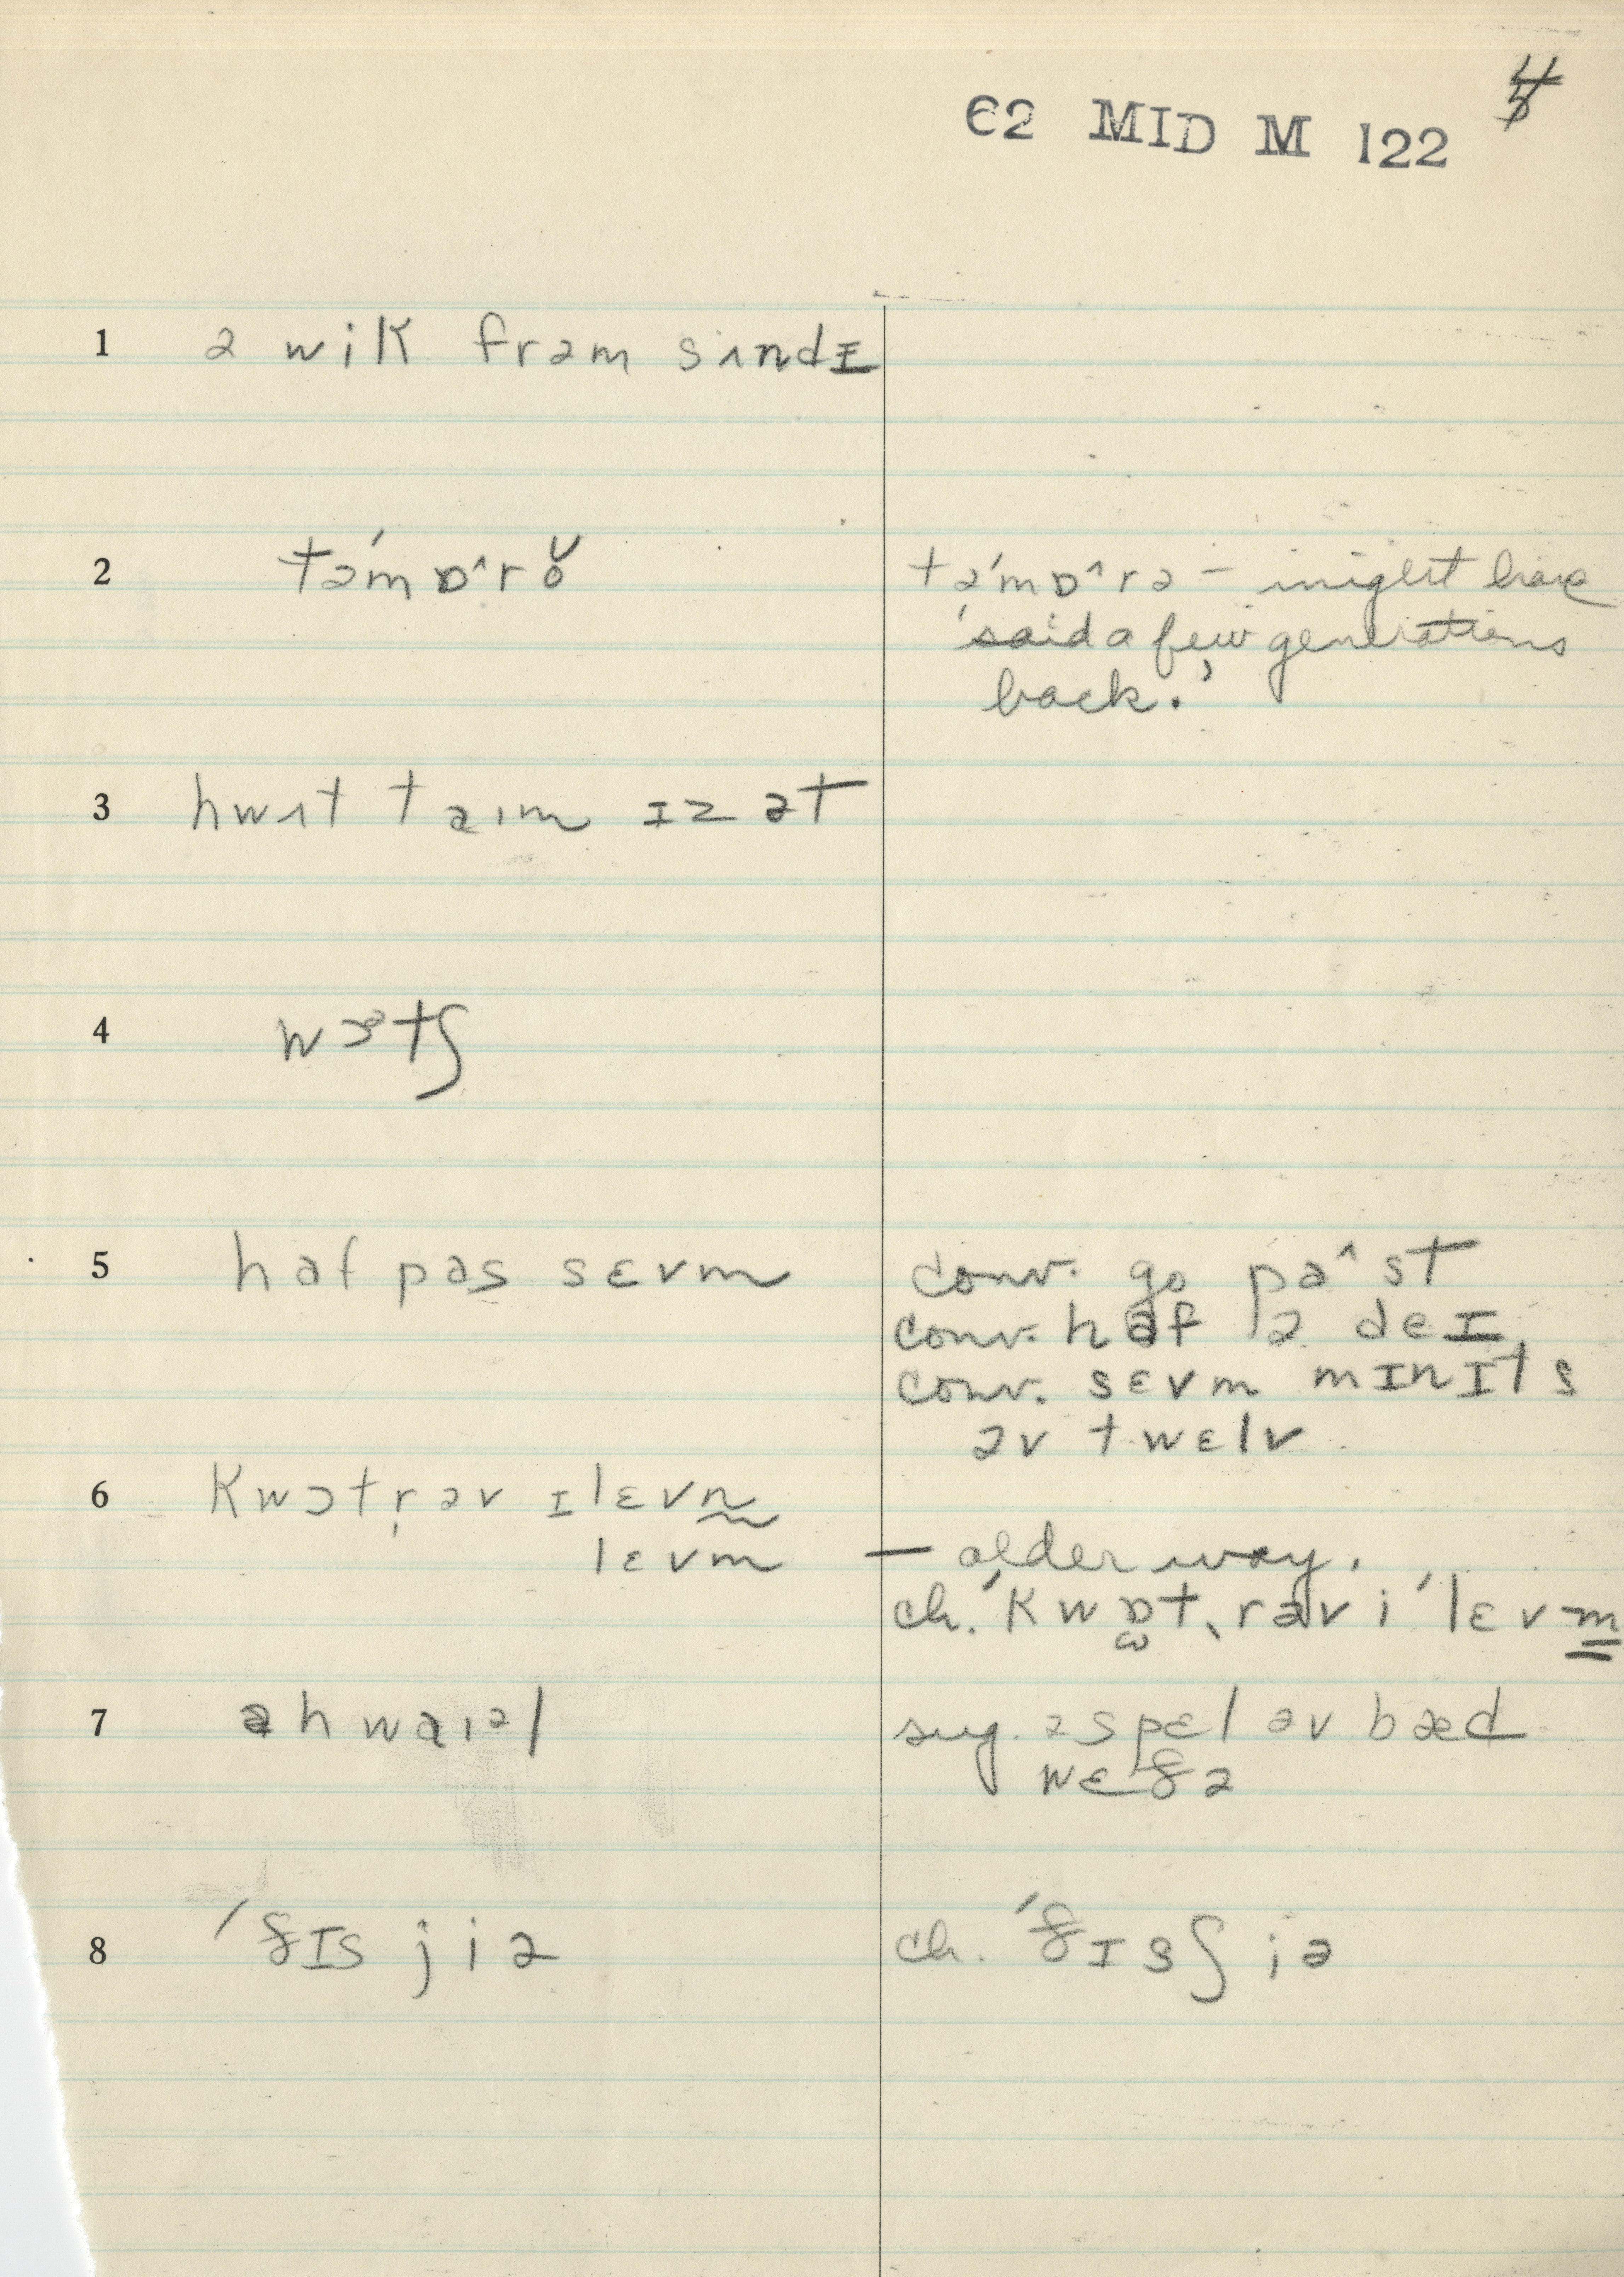 62 MID M 122 4
1 ə wik frəm sʌndɪ
2 tə́mɒ˄rŏ tə́mɒ˄rə – might have
'said a few generations
back.'
3 hwʌt taɪm ɪz ət
4 wɔᵊtʃ
5 haf pas sɛvm conv. go pa˄st
conv. haf ə deɪ
conv. sɛvm mɪnɪts
əv twɛlv
6 Kwɔtr̩əv ɪlɛvn
lɛvm — older way.
ch. ˈKwɒt, rəv iˈlɛvm
7 ə hwaɪəl sug. ə spɛl əv bæd
wɛðə
8 ˈðɪs jiə ch. ˈðɪsʃiə